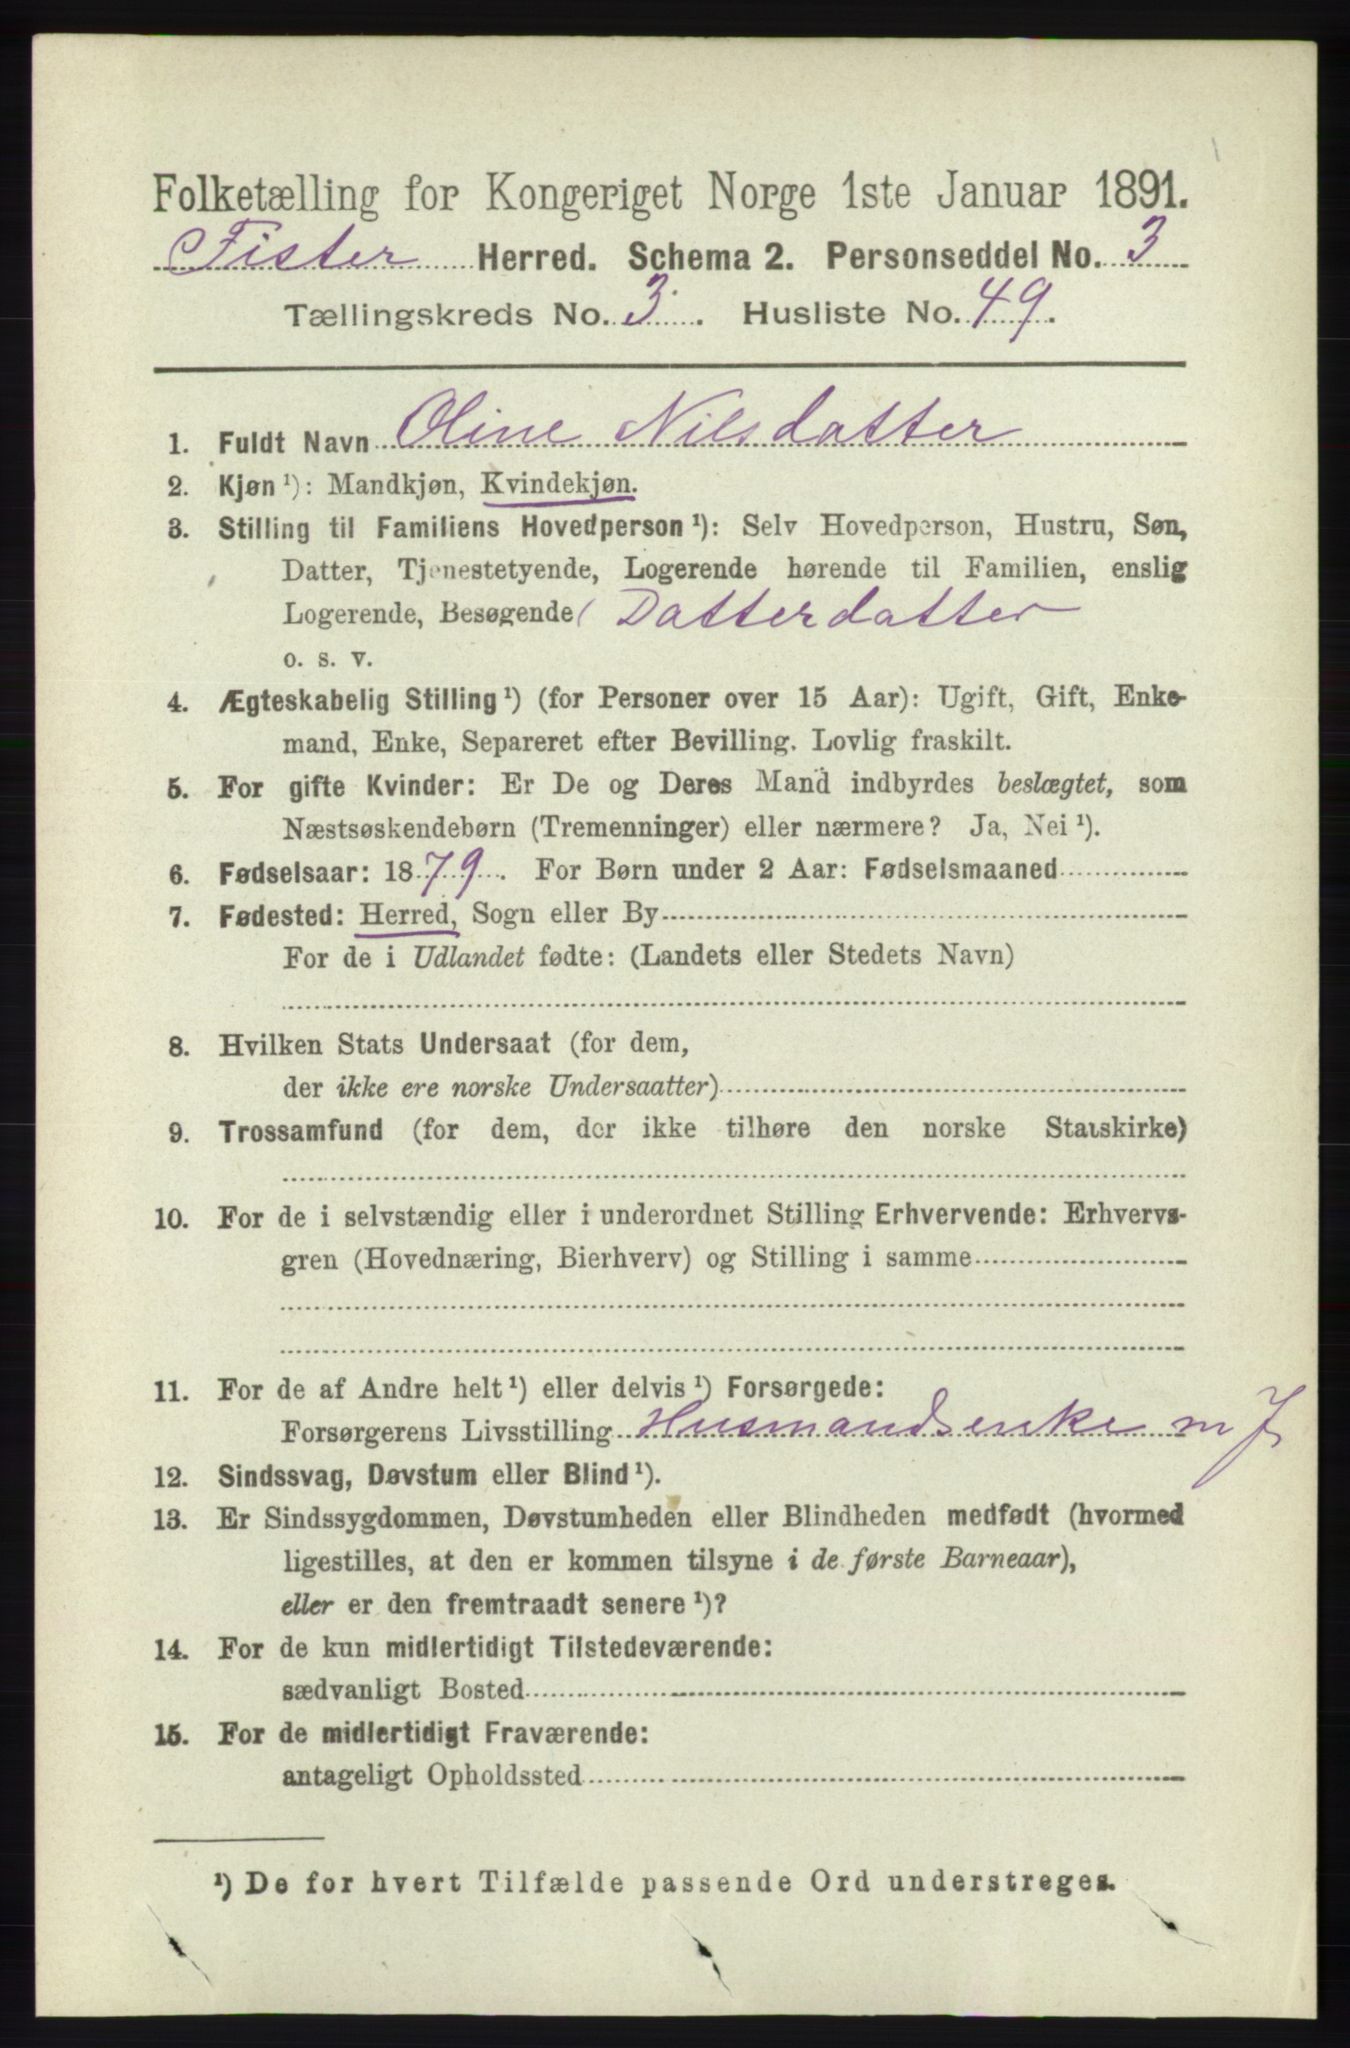 Folketælling for Kongeriget Norge 1ste Januar 1891.
Fister Herred. Schema 2. Personseddel No. 3
Tællingskreds No. 3. Husliste No. 49.
1. Fuldt Navn Oline Nilsdatter
2. Kjøn ¹): Mandkjøn, Kvindekjøn.
3. Stilling til Familiens Hovedperson ¹): Selv Hovedperson, Hustru, Søn,
Datter, Tjenestetyende, Logerende hørende til Familien, enslig
Logerende, Besøgende ( Datterdatter
o. s. v.
4. Ægteskabelig Stilling ¹) (for Personer over 15 Aar): Ugift, Gift, Enke-
mand, Enke, Separeret efter Bevilling. Lovlig fraskilt.
5. For gifte Kvinder: Er De og Deres Mand indbyrdes beslægtet, som
Næstsøskendebørn (Tremenninger) eller nærmere? Ja, Nei ¹).
6. Fødselsaar: 1879. For Børn under 2 Aar: Fødselsmaaned
7. Fødested: Herred, Sogn eller By
For de i Udlandet fødte: (Landets eller Stedets Navn)
8. Hvilken Stats Undersaat (for dem,
der ikke ere norske Undersaatter)
9. Trossamfund (for dem, der ikke tilhøre den norske Statskirke)
10. For de i selvstændig eller i underordnet Stilling Erhvervende: Erhvervs-
gren (Hovednæring, Bierhverv) og Stilling i samme
11. For de af Andre helt ¹) eller delvis ¹) Forsørgede:
Forsørgerens Livsstilling Husmandsenke m J
12. Sindssvag, Døvstum eller Blind ¹).
13. Er Sindssygdommen, Døvstumheden eller Blindheden medfødt (hvormed
ligestilles, at den er kommen tilsyne i de første Barneaar),
eller er den fremtraadt senere ¹)?
14. For de kun midlertidigt Tilstedeværende:
sædvanligt Bosted
15. For de midlertidigt Fraværende:
antageligt Opholdssted
¹) De for hvert Tilfælde passende Ord understreges.